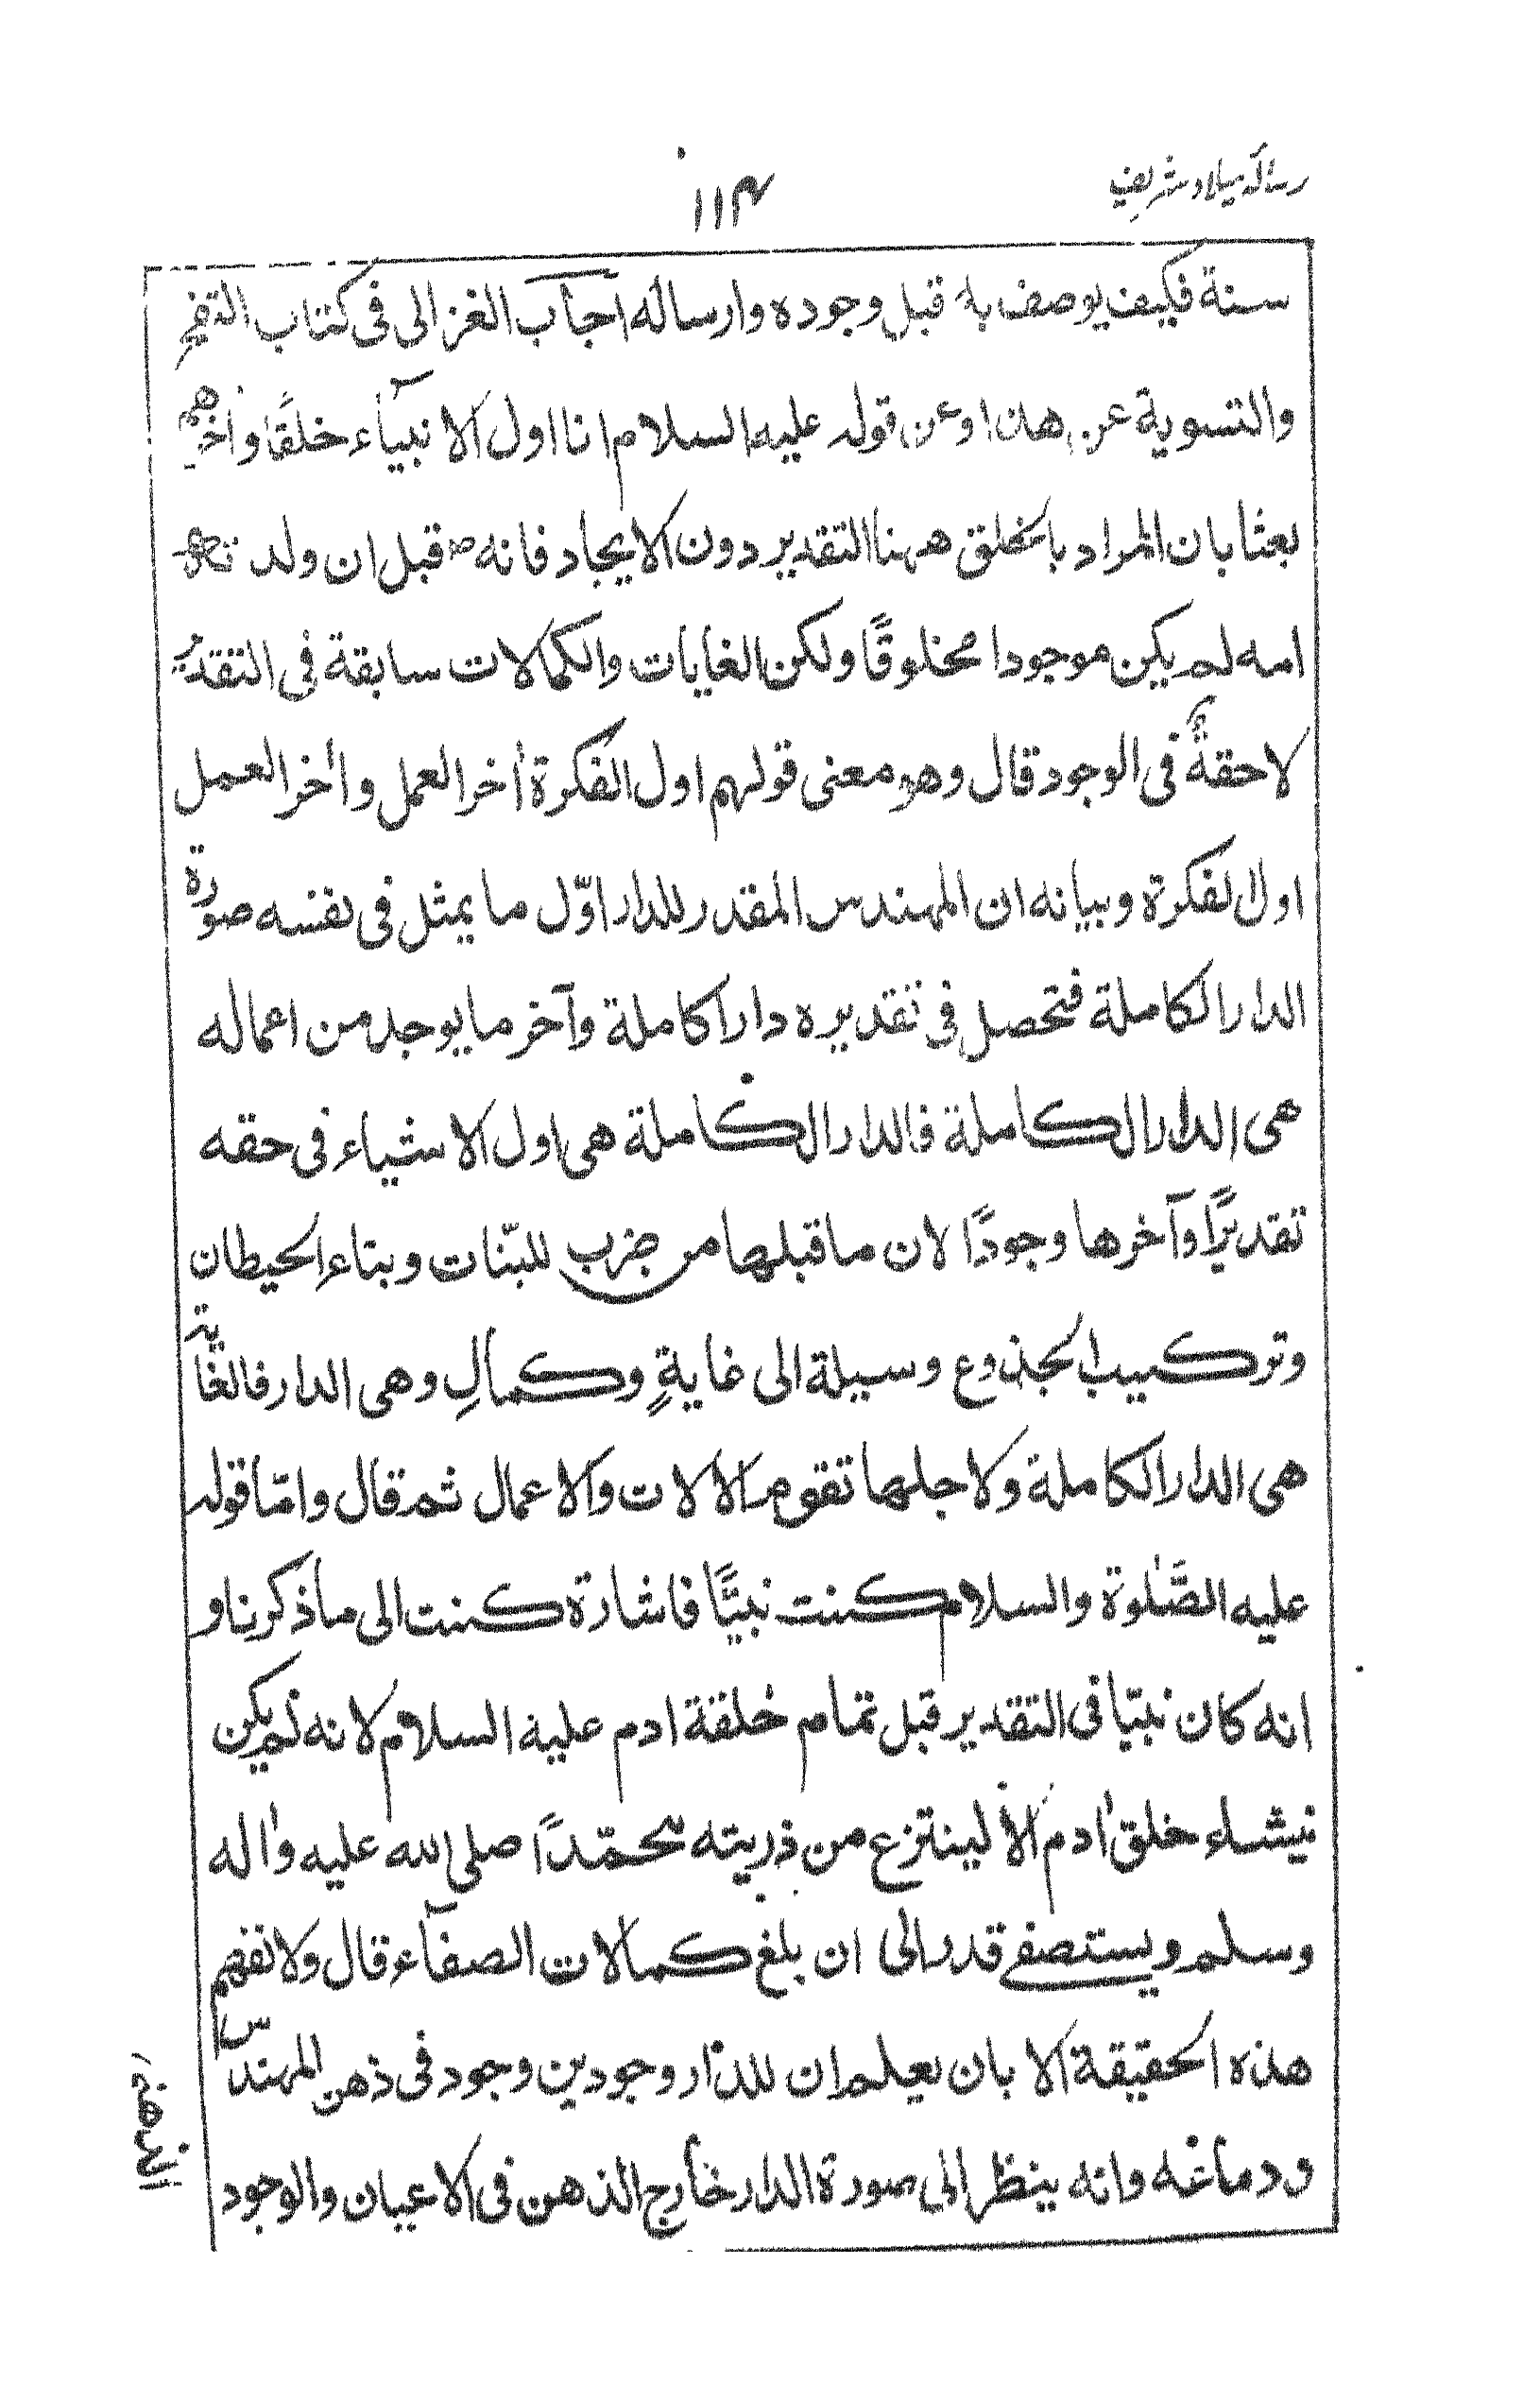 رسالہ میلاد شریف
۱۱۴
سنة فکیف یوصف به قبل وجوده وارساله اجاب الغزالی فی کتاب النفخ
والتسویة عن هذا وعن قوله علیه السلام انا اول الانبیآء خلقًا واخرهم
بعثا بان المراد بالخلق ههنا التقدیر دون الایجاد فانه ص قبل ان ولدته
امه لم یکن موجودا مخلوقًا ولکن الغایات والکمالات سابقة فی التقدیر
لاحقةٌ فی الوجود قال وهو معنی قولهم اول الفکرة اٰخر العمل واٰخر العمل
اول الفکرة وبیانه ان المهندس المقدر للدار اوّل ما یمثل فی نفسه صورة
الدار الکاملة فتحصل فی تقدیره دارا کاملة وآخر ما یوجد من اعماله
هی الدار الکاملة فالدار الکاملة هی اول الاشیاء فی حقه
تقدیرًا وآخرها وجودًا لان ما قبلها من ضرب للبّنات وبناء الحیطان
وترکیب الجذوع وسیلة الی غایةٍ وکمالِ وهی الدار فالغایة
هی الدار الکاملة ولاجلها تقوم الالات والاعمال ثم قال وامّا قوله
علیه الصَّلٰوة والسلام کنت نبیًّا فاشارة کنت الی ما ذکرنا و
انه کان نبیّا فی التقدیر قبل تمام خلقة ادم علیه السلام لانه لم یکن
ینشاء خلق اٰدم الا لینتزع من ذریته محمّدًا صلی الله علیه واٰله
وسلم ویستصفے قدر الی ان بلغ کمالات الصفآء قال ولا تفهم
هذه الحقیقة الا بان یعلم ان للدار وجودین وجود فی ذهن المهندس
و دماغه وانه ینظر الی صورة الدار خارج الذهن فی الاعیان والوجود
الذهنی